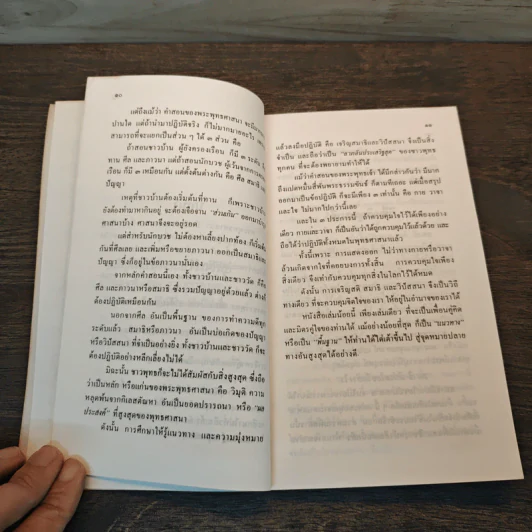 ๑๐
แต่ถึงแม้ว่า คำสอนของพระพุทธศาสนา จะมีมาก
ปานใด แต่ถ้านำมาปฏิบัติจริง ก็ไม่มากมายอะไร
สามารถที่จะแยกเป็นส่วน ๆ ได้ ๓ ส่วน คือ
ถ้าสอนชาวบ้าน ผู้ยังครองเรือน ก็มี ๓ ระดับ
ทาน ศีล และภาวนา แต่ถ้าสอนนักบวช ผู้เว้นจากการครอง
เรือน ก็มี ๓ เหมือนกัน แต่ตั้งต้นต่างกัน คือ ศีล สมาธิ
ปัญญา
เหตุที่ชาวบ้านต้องเริ่มต้นที่ทาน ก็เพราะชาวบ้าน
ยังต้องทำมาหากินอยู่ จะต้องเจือจาน "ส่วนเกิน" ออกมาบำรุง
ศาสนาบ้าง ศาสนาจึงจะอยู่รอด
แต่สำหรับนักบวช ไม่ต้องหาเลี้ยงปากท้อง ก็เริ่มต้น
กันที่ศีลเลย และเพิ่มหรือขยายภาวนา ออกเป็นสมาธิและ
ปัญญา ซึ่งก็อยู่ในข้อภาวนานั่นเอง
จากหลักคำสอนนี้เอง ทั้งชาวบ้านและชาววัด ก็ต้อง
ศีล และภาวนาหรือสมาธิ ซึ่งรวมปัญญาอยู่ด้วยแล้ว
ต้องปฏิบัติเหมือนกัน
นอกจากศีล อันเป็นพื้นฐาน ของการทำความดีทุก
ระดับแล้ว สมาธิหรือภาวนา อันเป็นบ่อเกิดของปัญญา
หรือวิปัสสนา ที่จำเป็นอย่างยิ่ง ทั้งชาวบ้านและชาววัด ก็จะ
ต้องปฏิบัติอย่างหลีกเลี่ยงไม่ได้
มิฉะนั้น ชาวพุทธก็จะไม่ได้สัมผัสกับสิ่งสูงสุด ซึ่งถือ
ว่าเป็นหลัก หรือแก่นของพระพุทธศาสนา คือ วิมุติ ความ
หลุดพ้นจากกิเลสตัณหา อันเป็นยอดปรารถนา หรือ "ผล
ประสงค์" ที่สูงสุดของพุทธศาสนา
ดังนั้น การศึกษาให้รู้แนวทาง และความมุ่งหมาย
๑๑
แล้วลงมือปฏิบัติ คือ เจริญสมาธิและวิปัสสนา จึงเป็นสิ่ง
จำเป็น และถือว่าเป็น "ลาภอันประเสริฐสุด" ของชาวพุทธ
ทุกคน ที่จะต้องพยายามทำให้ได้
แม้ว่าคำสอนของพระพุทธเจ้า ได้มีกล่าวกันว่า มีมาก
ถึงแปดหมื่นสี่พันพระธรรมขันธ์ ก็ตามทีเถอะ แต่เมื่อสรุป
ออกมาเป็นข้อปฏิบัติ ก็จะมีเพียง ๓ เท่านั้น คือ กาย วาจา
และใจ ไม่มากไปกว่านี้เลย
และใน ๓ ประการนี้ ถ้าควบคุมใจไว้ได้เพียงอย่าง
เดียว กายและวาจา ก็เป็นอันว่าได้ถูกควบคุมไว้แล้วด้วย และ
ถือได้ว่าปฏิบัติทั้งหมดในพุทธศาสนาแล้ว
ทั้งนี้เพราะ การแสดงออก ไม่ว่าทางกายหรือวาจา
ล้วนเกิดจากใจที่คอยบงการทั้งสิ้น การควบคุมใจเพียง
สิ่งเดียว จึงเท่ากับควบคุมทุกสิ่งในโลกไว้ได้หมด
ดังนั้น การเจริญสติ สมาธิ และวิปัสสนา จึงเป็นวิถี
ทางเดียว ที่จะควบคุมจิตใจของเรา ให้อยู่ในอำนาจของเราได้
หนังสือเล่มน้อยนี้ เพียงเล่มเดียว ที่จะเป็นเพื่อนคู่คิด
และมิตรคู่ใจของท่านได้ แม้อย่างน้อยที่สุด ก็เป็น "แนวทาง"
หรือเป็น "พื้นฐาน" ให้ท่านได้ไต่เต้าขึ้นไป สู่จุดหมายปลาย
ทางอันสูงสุดได้อย่างดี